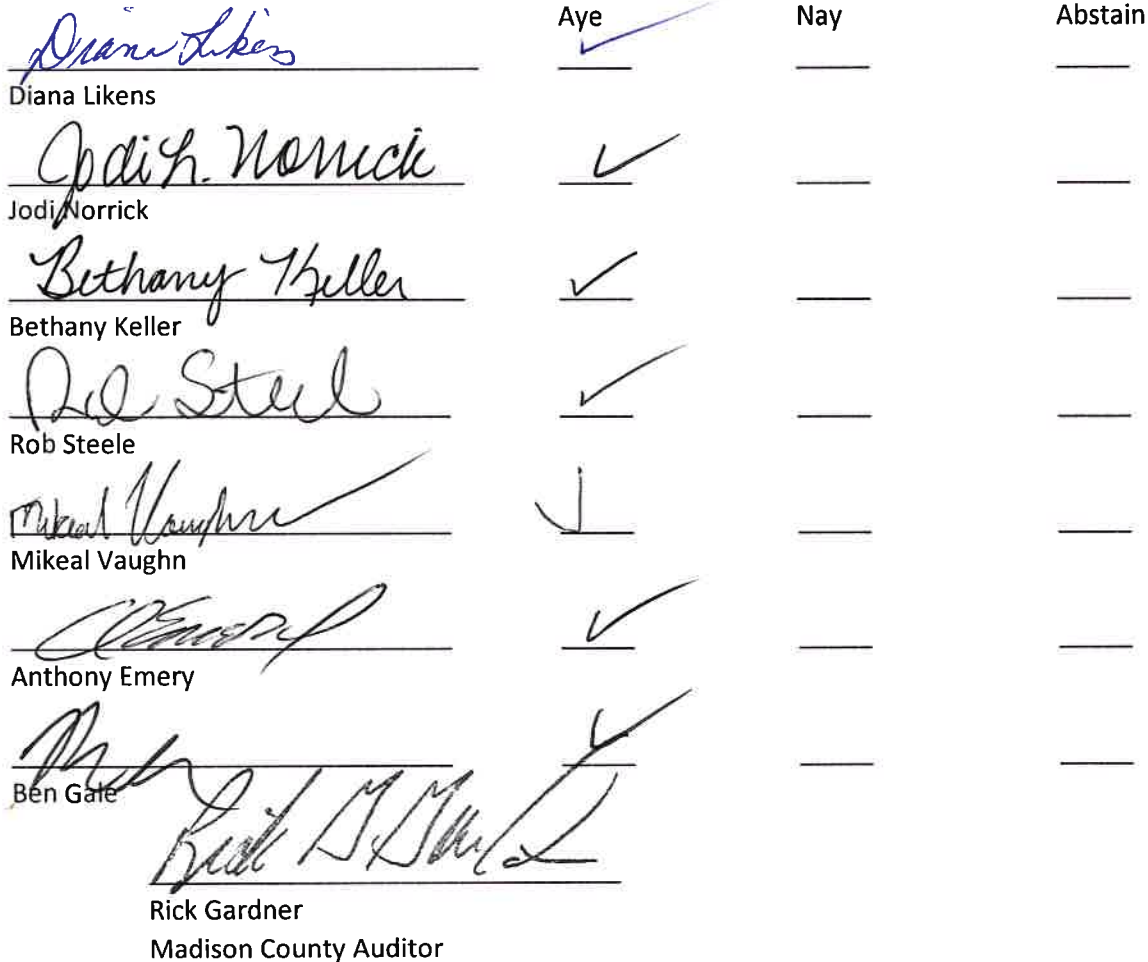 Aye Nay Abstain
Diana Likens
Diana Likens
Jodi L. Norrick
Jodi Norrick
Bethany Keller
Bethany Keller
Rob Steele
Rob Steele
Mikeal Vaughn
Mikeal Vaughn
Anthony Emery
Ben Gale
Rick G Gardner
Rick Gardner
Madison County Auditor